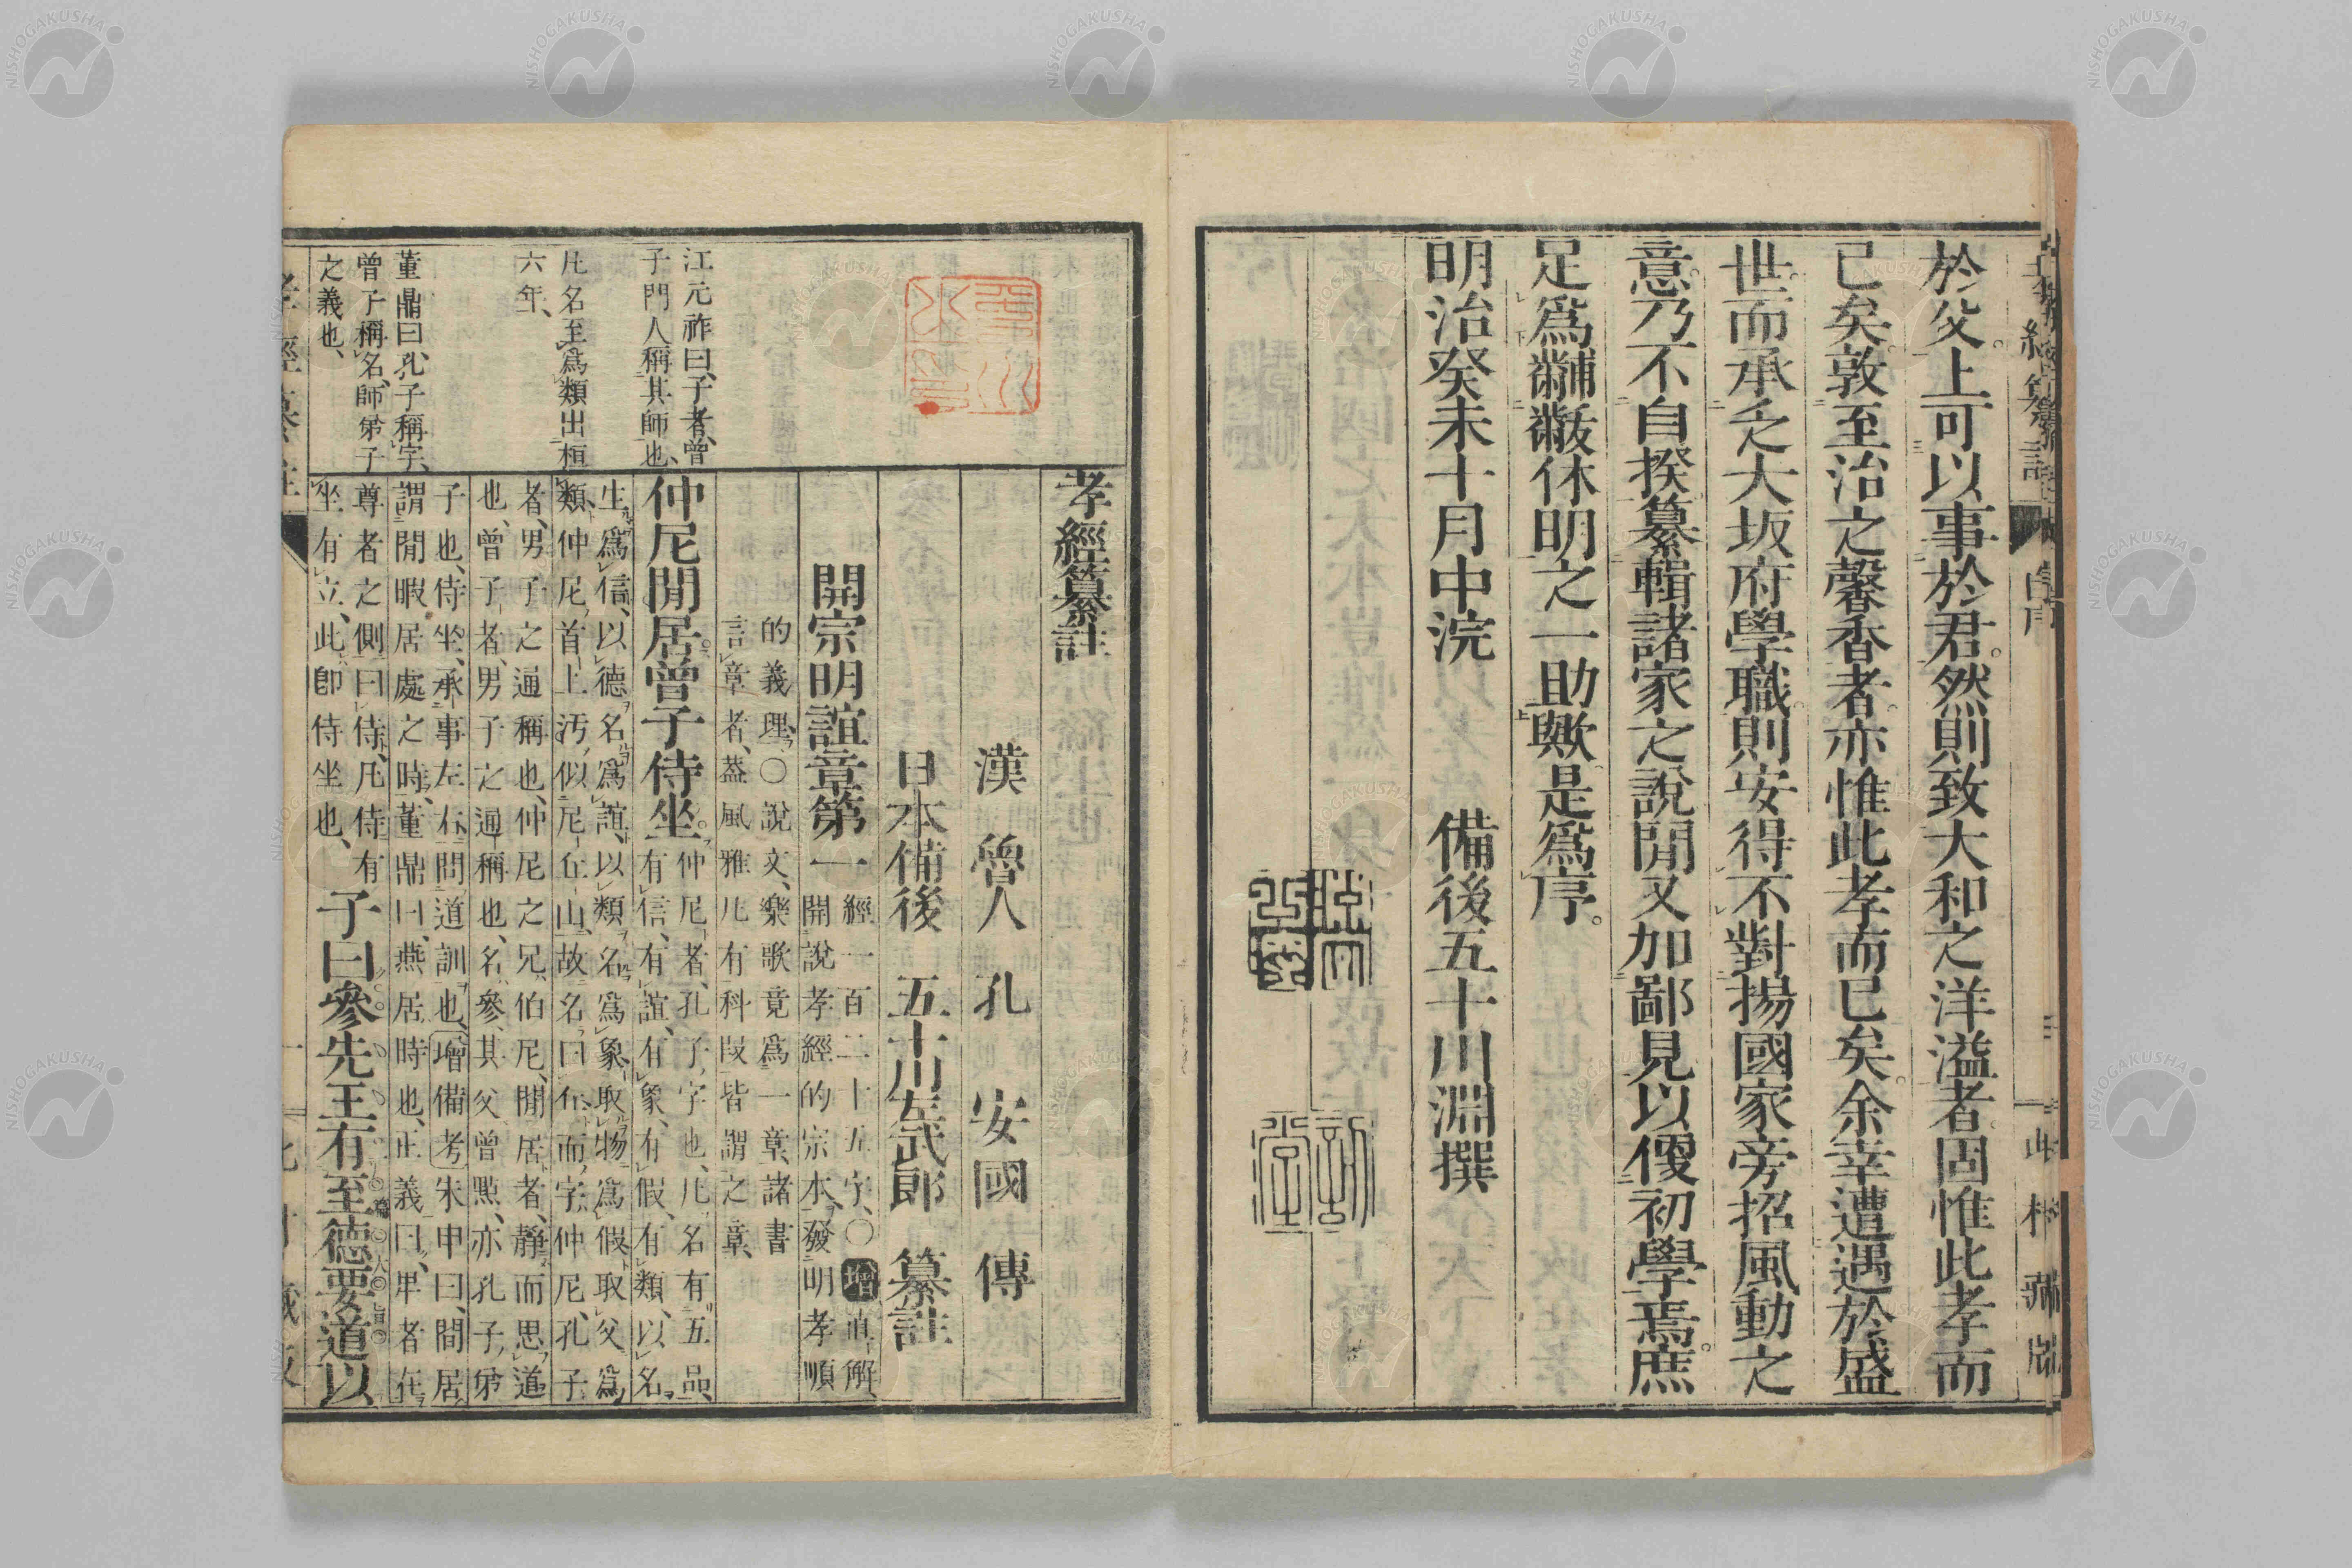 於父。上可以事於君。然則致大和之洋溢者。固惟此孝而
已矣。敦至治之馨香者。亦惟此孝而已矣。余幸遭遇於盛
世。而承乏大坂府學職。則安得不對揚國家旁招風動之
意。乃不自揆纂輯諸家之說。閒又加鄙見。以便初學焉。庶
足爲黼黻休明之一助歟。是爲序。
明治癸未十月中浣　備後五十川淵撰
孝經纂註
漢　魯人　孔　安國　傳
日本備後　五十川左武郎　纂註
開宗明誼章第一
經一百二十五字、〇增直解、
開說孝經的宗本、發明孝順
的義理、〇說文、樂歌竟爲一章、諸書
言章者、葢風雅凡有科段皆謂之章、
仲尼閒居。曾子侍坐。
仲尼者、孔子字也、凡名有五品、
有信、有誼、有象、有假、有類、以名
生爲信、以德名爲誼、以類名爲象、取物爲假、取父爲
類、仲尼首上汚、似尼丘山、故名曰丘、而字仲尼、孔子
者、男子之通稱也、仲尼之兄、伯尼、閒居者、靜而思道
也、曾子者、男子之通稱也、名參、其父曾點、亦孔子弟
子也、侍坐、承事左右、問道訓也、增備考朱申曰、閒居、
謂閒暇居處之時、董鼎曰、燕居時也、正義曰、卑者在
尊者之側曰侍、凡侍有
坐有立、此卽侍坐也、
子曰參先王有至德要道以
江元祚曰、子者、曾
子門人稱其師也、
凡名至爲類出桓
六年、
董鼎曰、孔子稱字、
曾子稱名、師弟子
之義也、